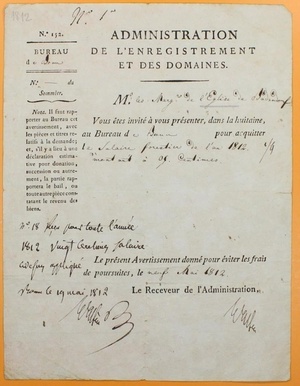 1812
N.º 152.
BUREAU
d
N.º de
Sommier.
Nota. Il faut rap-
porter au Bureau cet
avertissement, avec
les pièces et titres re-
latifs à la demande;
et, s'il y a lieu à une
déclaration estima-
tive pour donation,
succession ou autre-
ment, la partie rap-
portera le bail, ou
toutes autres preuves
de la consistance des
biens.
ADMINISTRATION
DE L'ENREGISTREMENT
ET DES DOMAINES.
M.rs les de l'Eglise de
Vous êtes invité à vous présenter, dans la huitaine,
au Bureau d pour acquitter
le Salaire forestier de l'an 1812.
montant à 25 Centimes
N.º 18 Reçu pour toute l'année
1812 Vingt Centimes Salaire
19 mai 1812
Le présent Avertissement donné pour éviter les frais
de poursuites, le neuf Mai 1812
Le Receveur de l'Administration.